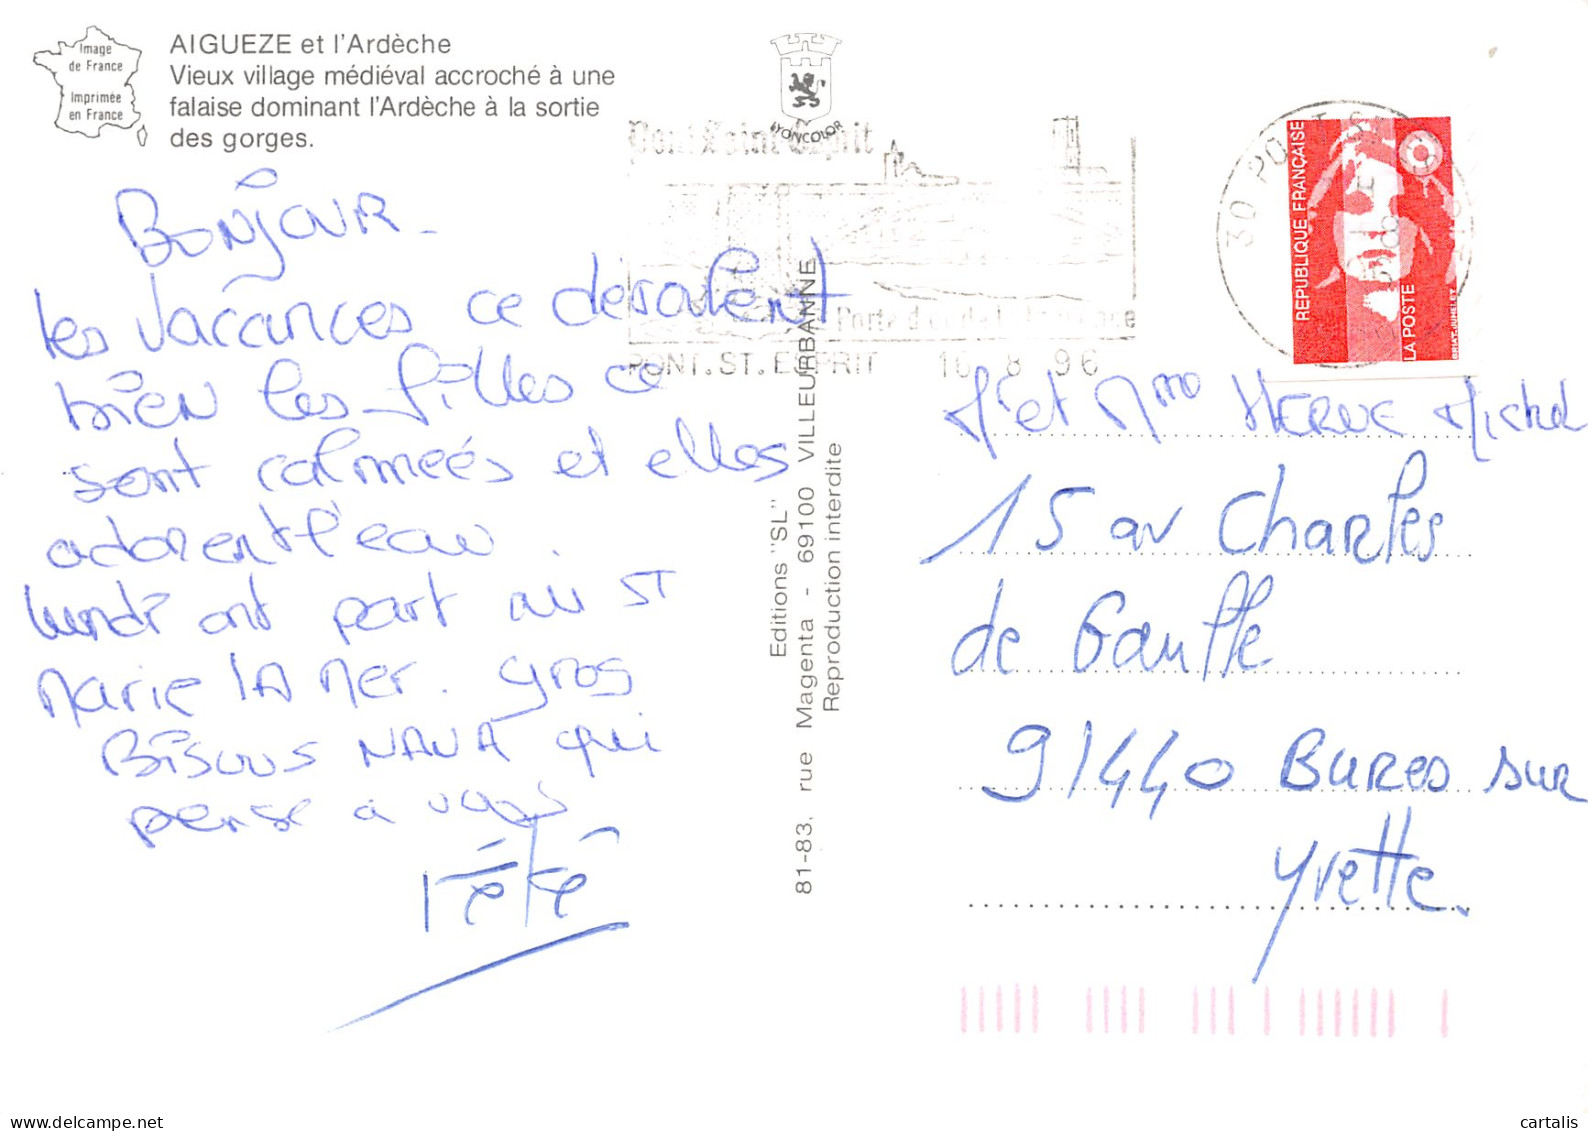 Image
de France
Imprimée
en France
AIGUEZE et l'Ardèche
Vieux village médiéval accroché à une
falaise dominant l'Ardèche à la sortie
des gorges.
LYONCOLOR
Pont Saint Esprit
Porte d'or de
PONT. ST. ESPRIT 16 8 96
30 PONT S
REPUBLIQUE FRANÇAISE
LA POSTE
BRIAT-JUMELET
Bonjour -
les vacances ce déroulent
bien les filles ce
sont calmées et elles
adorent l'eau .
lundi ont part au ST
Marie la Mer. gros
Bisous NANA qui
pense a vous
Tété
Editions "SL"
81-83, rue Magenta - 69100 VILLEURBANNE
Reproduction interdite
Mr et Mme HERVE Michel
15 av Charles
de Gaulle
91440 Bures sur
Yvette.
delcampe.net
cartalis